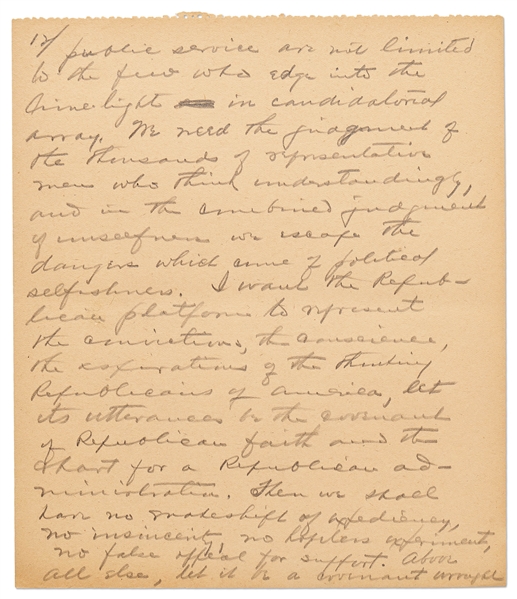 12/ public service are not limited
to the few who edge into the
limelight in candidatorial
array. We need the judgment of
the thousands of representative
men who think understandingly,
and in the combined judgment
of unselfness we escape the
dangers which come of political
selfishness. I want the Repub-
lican platform to represent
the convictions, the conscience,
the aspirations of the thinking
Republicans of America, let
its utterances be the covenant
of Republican faith and the
chart for a Republican ad-
ministration. Then we shall
have no makeshift of expediency,
no insincerity no hopeless experiment,
no false appeal for support. Above
all else, let it be a covenant wrought